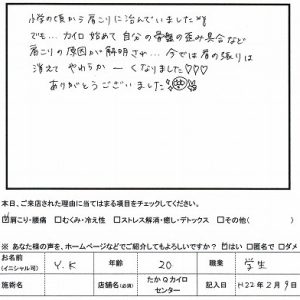 小学の頃から肩こりに悩んでいました
でも… カイロ始めて自分の骨盤の歪み具合など
肩こりの原因が解明され… 今では肩の張りは
消えて やわらか ー くなりました♡♡♡
ありがとうございました
本日、ご来店された理由に当てはまる項目をチェックしてください。
☑肩こり・腰痛 □むくみ・冷え性 □ストレス解消・癒し・デトックス □その他( )
※ あなた様の声を、ホームページなどでご紹介してもよろしいですか? ☑はい □匿名で □ダメ
お名前 (イニシャル可) Y.K 年齢 20 職業 学生
施術名 店舗名(必須) たかQカイロセンター 記入日 H22年2月9日